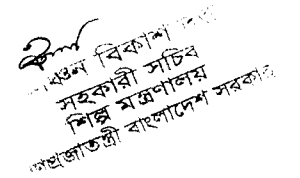 বিকাশ
সহকারী সচিব
শিল্প মন্ত্রণালয়
গণপ্রজাতন্ত্রী বাংলাদেশ সরকার